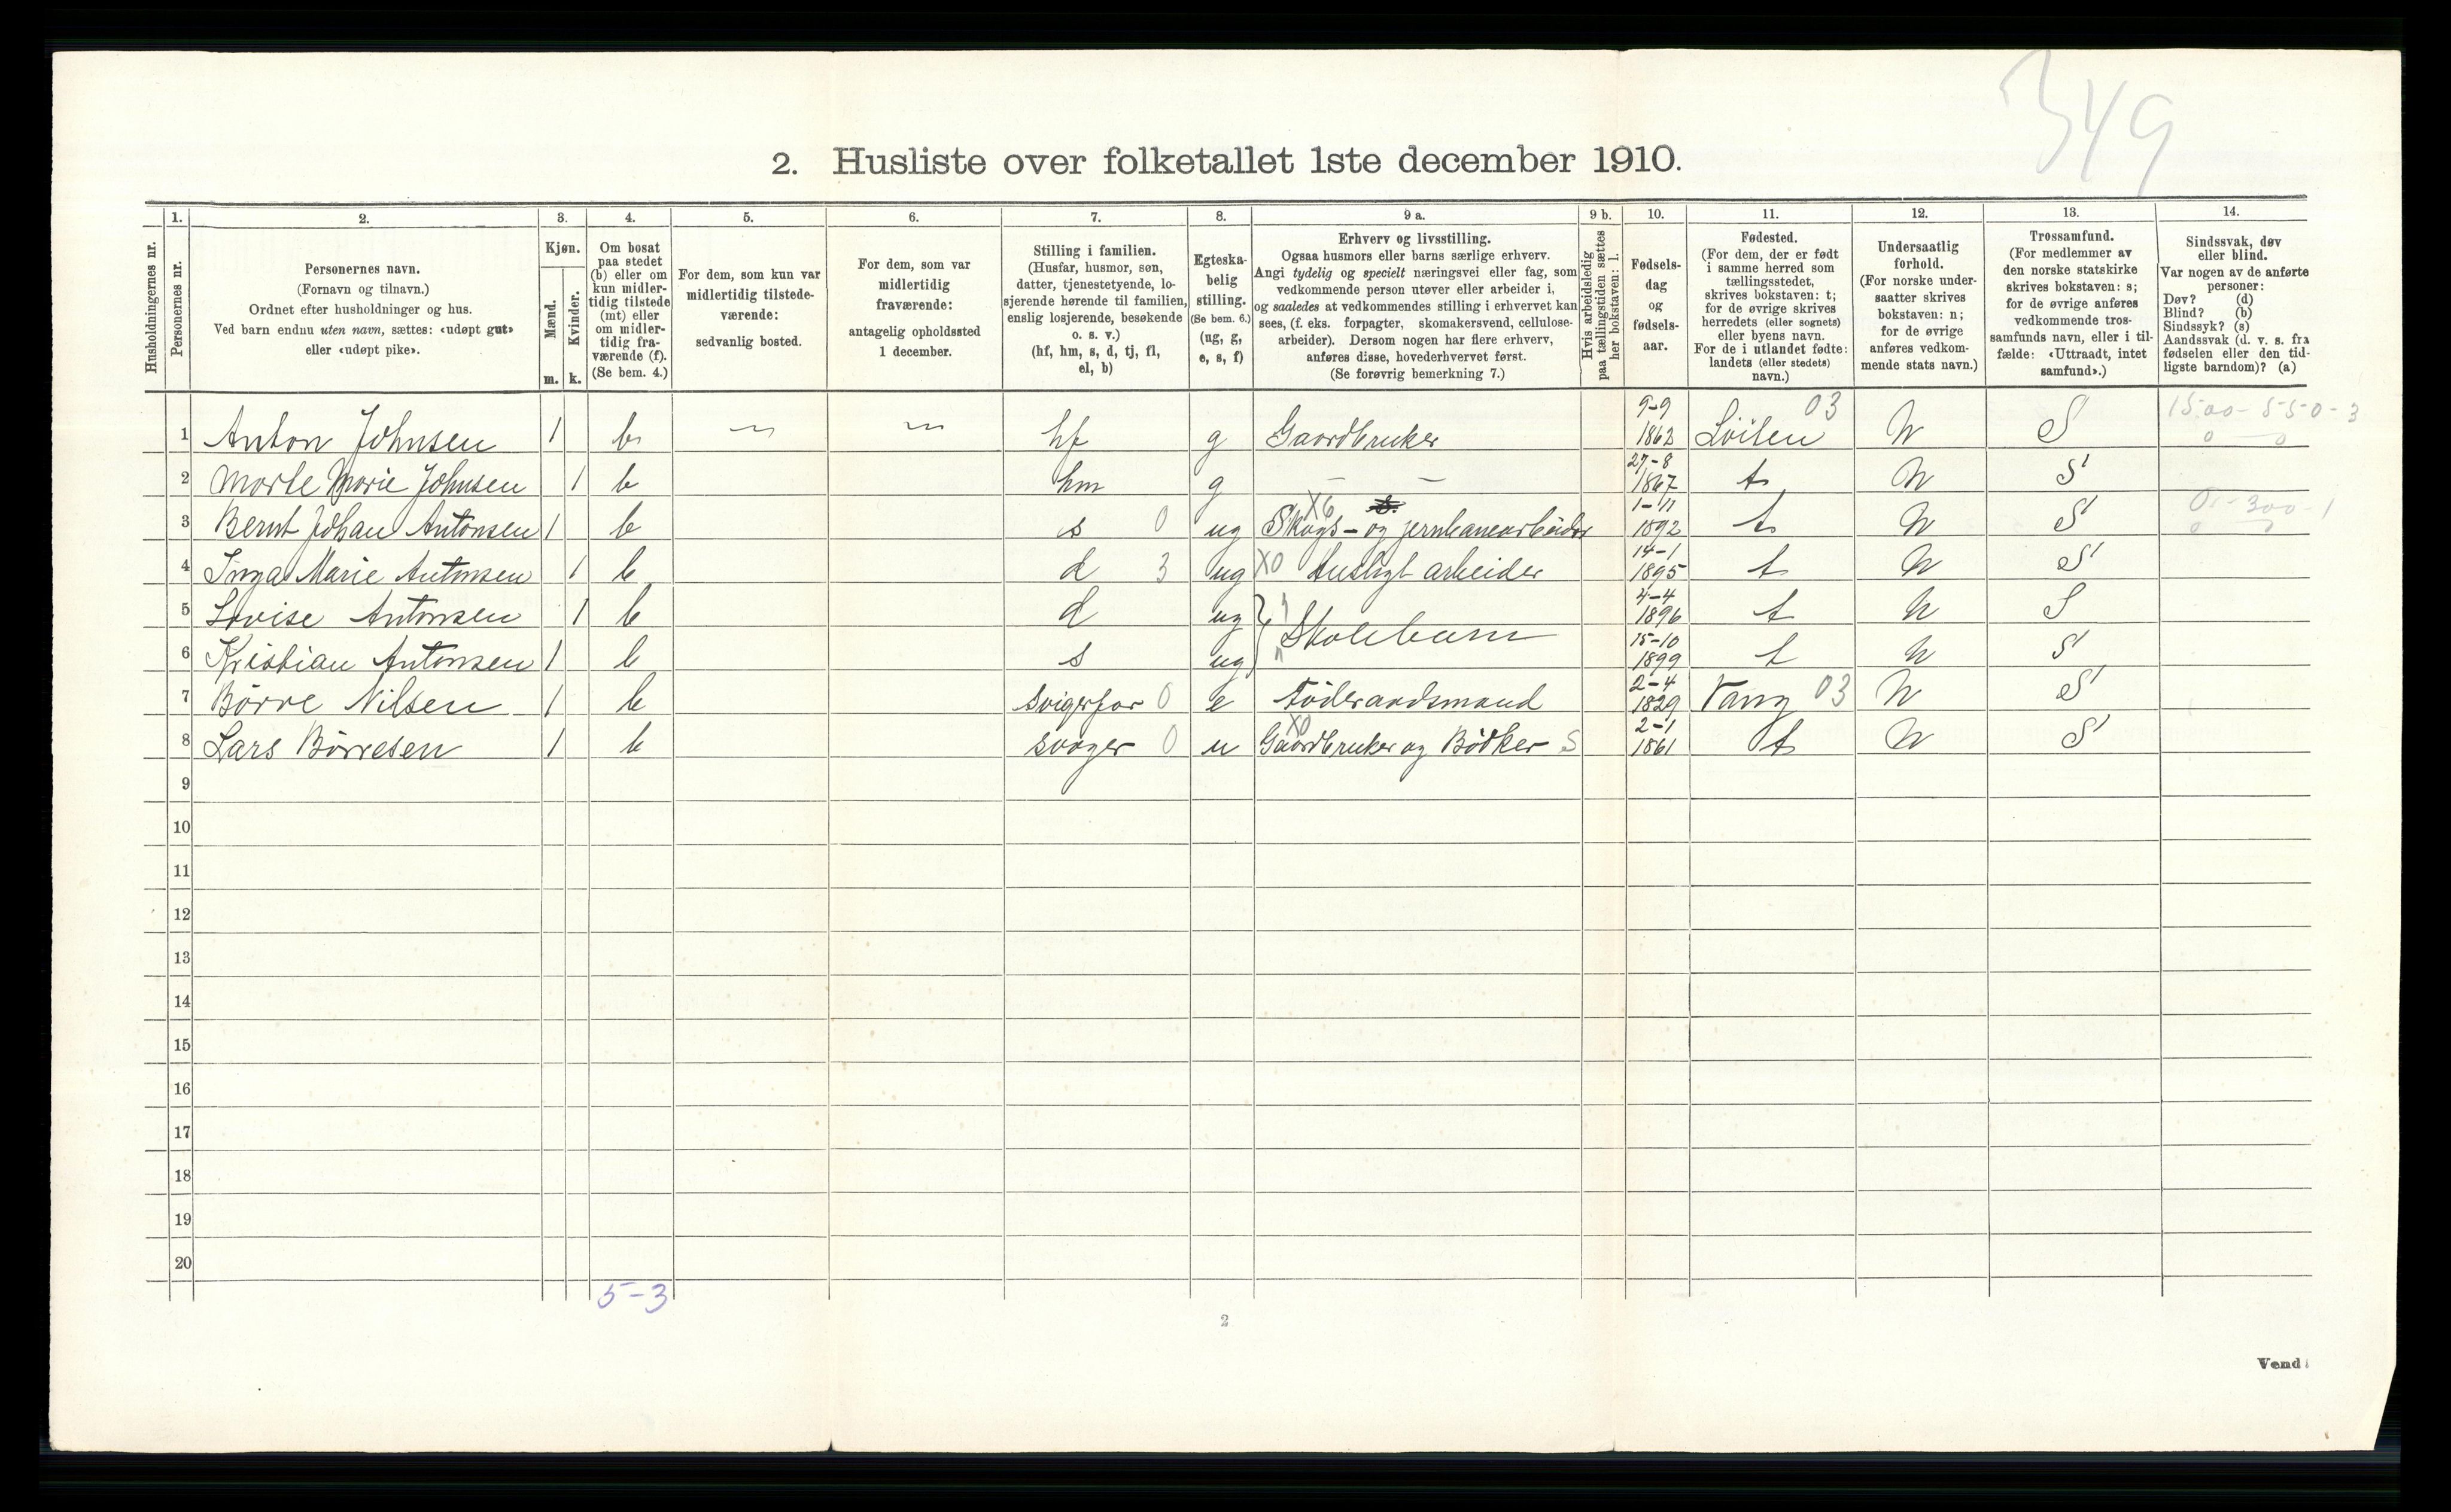 349
2. Husliste over folketallet 1ste december 1910.
Husholdningernes nr.
1.
Personernes nr.
2.
Personernes navn.
(Fornavn og tilnavn.)
Ordnet efter husholdninger og hus.
Ved barn endnu uten navn, sættes: «udøpt gut»
eller «udøpt pike».
3.
Kjøn.
Mænd.
m.
Kvinder.
k.
4.
Om bosat
paa stedet
(b) eller om
kun midler-
tidig tilstede
(mt) eller
om midler-
tidig fra-
værende (f).
(Se bem. 4.)
5.
For dem, som kun var
midlertidig tilstede-
værende:
sedvanlig bosted.
6.
For dem, som var
midlertidig
fraværende:
antagelig opholdssted
1 december.
7.
Stilling i familien.
(Husfar, husmor, søn,
datter, tjenestetyende, lo-
sjerende hørende til familien,
enslig losjerende, besøkende
o. s. v.)
(hf, hm, s, d, tj, fl,
el, b)
8.
Egteska-
belig
stilling.
(Se bem. 6.)
(ug, g,
e, s, f)
9 a.
Erhverv og livsstilling.
Ogsaa husmors eller barns særlige erhverv.
Angi tydelig og specielt næringsvei eller fag, som
vedkommende person utøver eller arbeider i,
og saaledes at vedkommendes stilling i erhvervet kan
sees, (f. eks. forpagter, skomakersvend, cellulose-
arbeider). Dersom nogen har flere erhverv,
anføres disse, hovederhvervet først.
(Se forøvrig bemerkning 7.)
9 b.
Hvis arbeidsledig
paa tællingstiden sættes
her bokstaven: l.
10.
Fødsels-
dag
og
fødsels-
aar.
11.
Fødested.
(For dem, der er født
i samme herred som
tællingsstedet,
skrives bokstaven: t;
for de øvrige skrives
herredets (eller sognets)
eller byens navn.
For de i utlandet fødte:
landets (eller stedets)
navn.)
12.
Undersaatlig
forhold.
(For norske under-
saatter skrives
bokstaven: n;
for de øvrige
anføres vedkom-
mende stats navn.)
13.
Trossamfund.
(For medlemmer av
den norske statskirke
skrives bokstaven: s;
for de øvrige anføres
vedkommende tros-
samfunds navn, eller i til-
fælde: «Uttraadt, intet
samfund».)
14.
Sindssvak, døv
eller blind.
Var nogen av de anførte
personer:
Døv? (d)
Blind? (b)
Sindssyk? (s)
Aandssvak (d. v. s. fra
fødselen eller den tid-
ligste barndom)? (a)
1 Anton Johnsen 1 b hf g Gaardbruker 9-9 1862 Löiten 03 N S 1500-550-3
2 Marte Marie Johnsen 1 b hm g – – 27-8 1867 t N S
3 Bernt Johan Antonsen 1 b s 0 ug X6 Skogs- og jernbanearbeider 1-11 1892 t N S 0-300-1
4 Inga Marie Antonsen 1 b d 3 ug X0 Husligt arbeider 14-1 1895 t N S
5 Lovise Antonsen 1 b d ug } Skolebarn 4-4 1896 t N S
6 Kristian Antonsen 1 b s ug 15-10 1899 t N S
7 Börre Nilsen 1 b svigerfar 0 e Föderaadsmand 2-4 1829 Vang 03 N S
8 Lars Börresen 1 b svoger 0 u X0 Gaardbruker og Bödker S 2-1 1861 t N S
9
10
11
12
13
14
15
16
17
18
19
20
5-3
2
Vend!